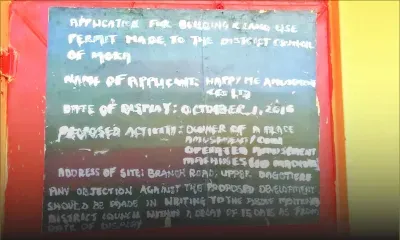 APPLICATION FOR BUILDING & LAND USE
PERMIT MADE TO THE DISTRICT COUNCIL
OF MOKA
NAME OF APPLICANT: HAPPY ME AMUSEMENT
CO LTD
DATE OF DISPLAY: OCTOBER, 1, 2016
PROPOSED ACTIVITY: OWNER OF A PLACE
AMUSEMENT/COIN
OPERATED AMUSEMENT
MACHINES
ADDRESS OF SITE: BRANCH ROAD, UPPER DAGOTIERE
ANY OBJECTION AGAINST THE PROPOSED DEVELOPMENT
SHOULD BE MADE IN WRITING TO THE
DISTRICT COUNCIL WITHIN A DELAY OF DAYS AS FROM
DATE OF DISPLAY